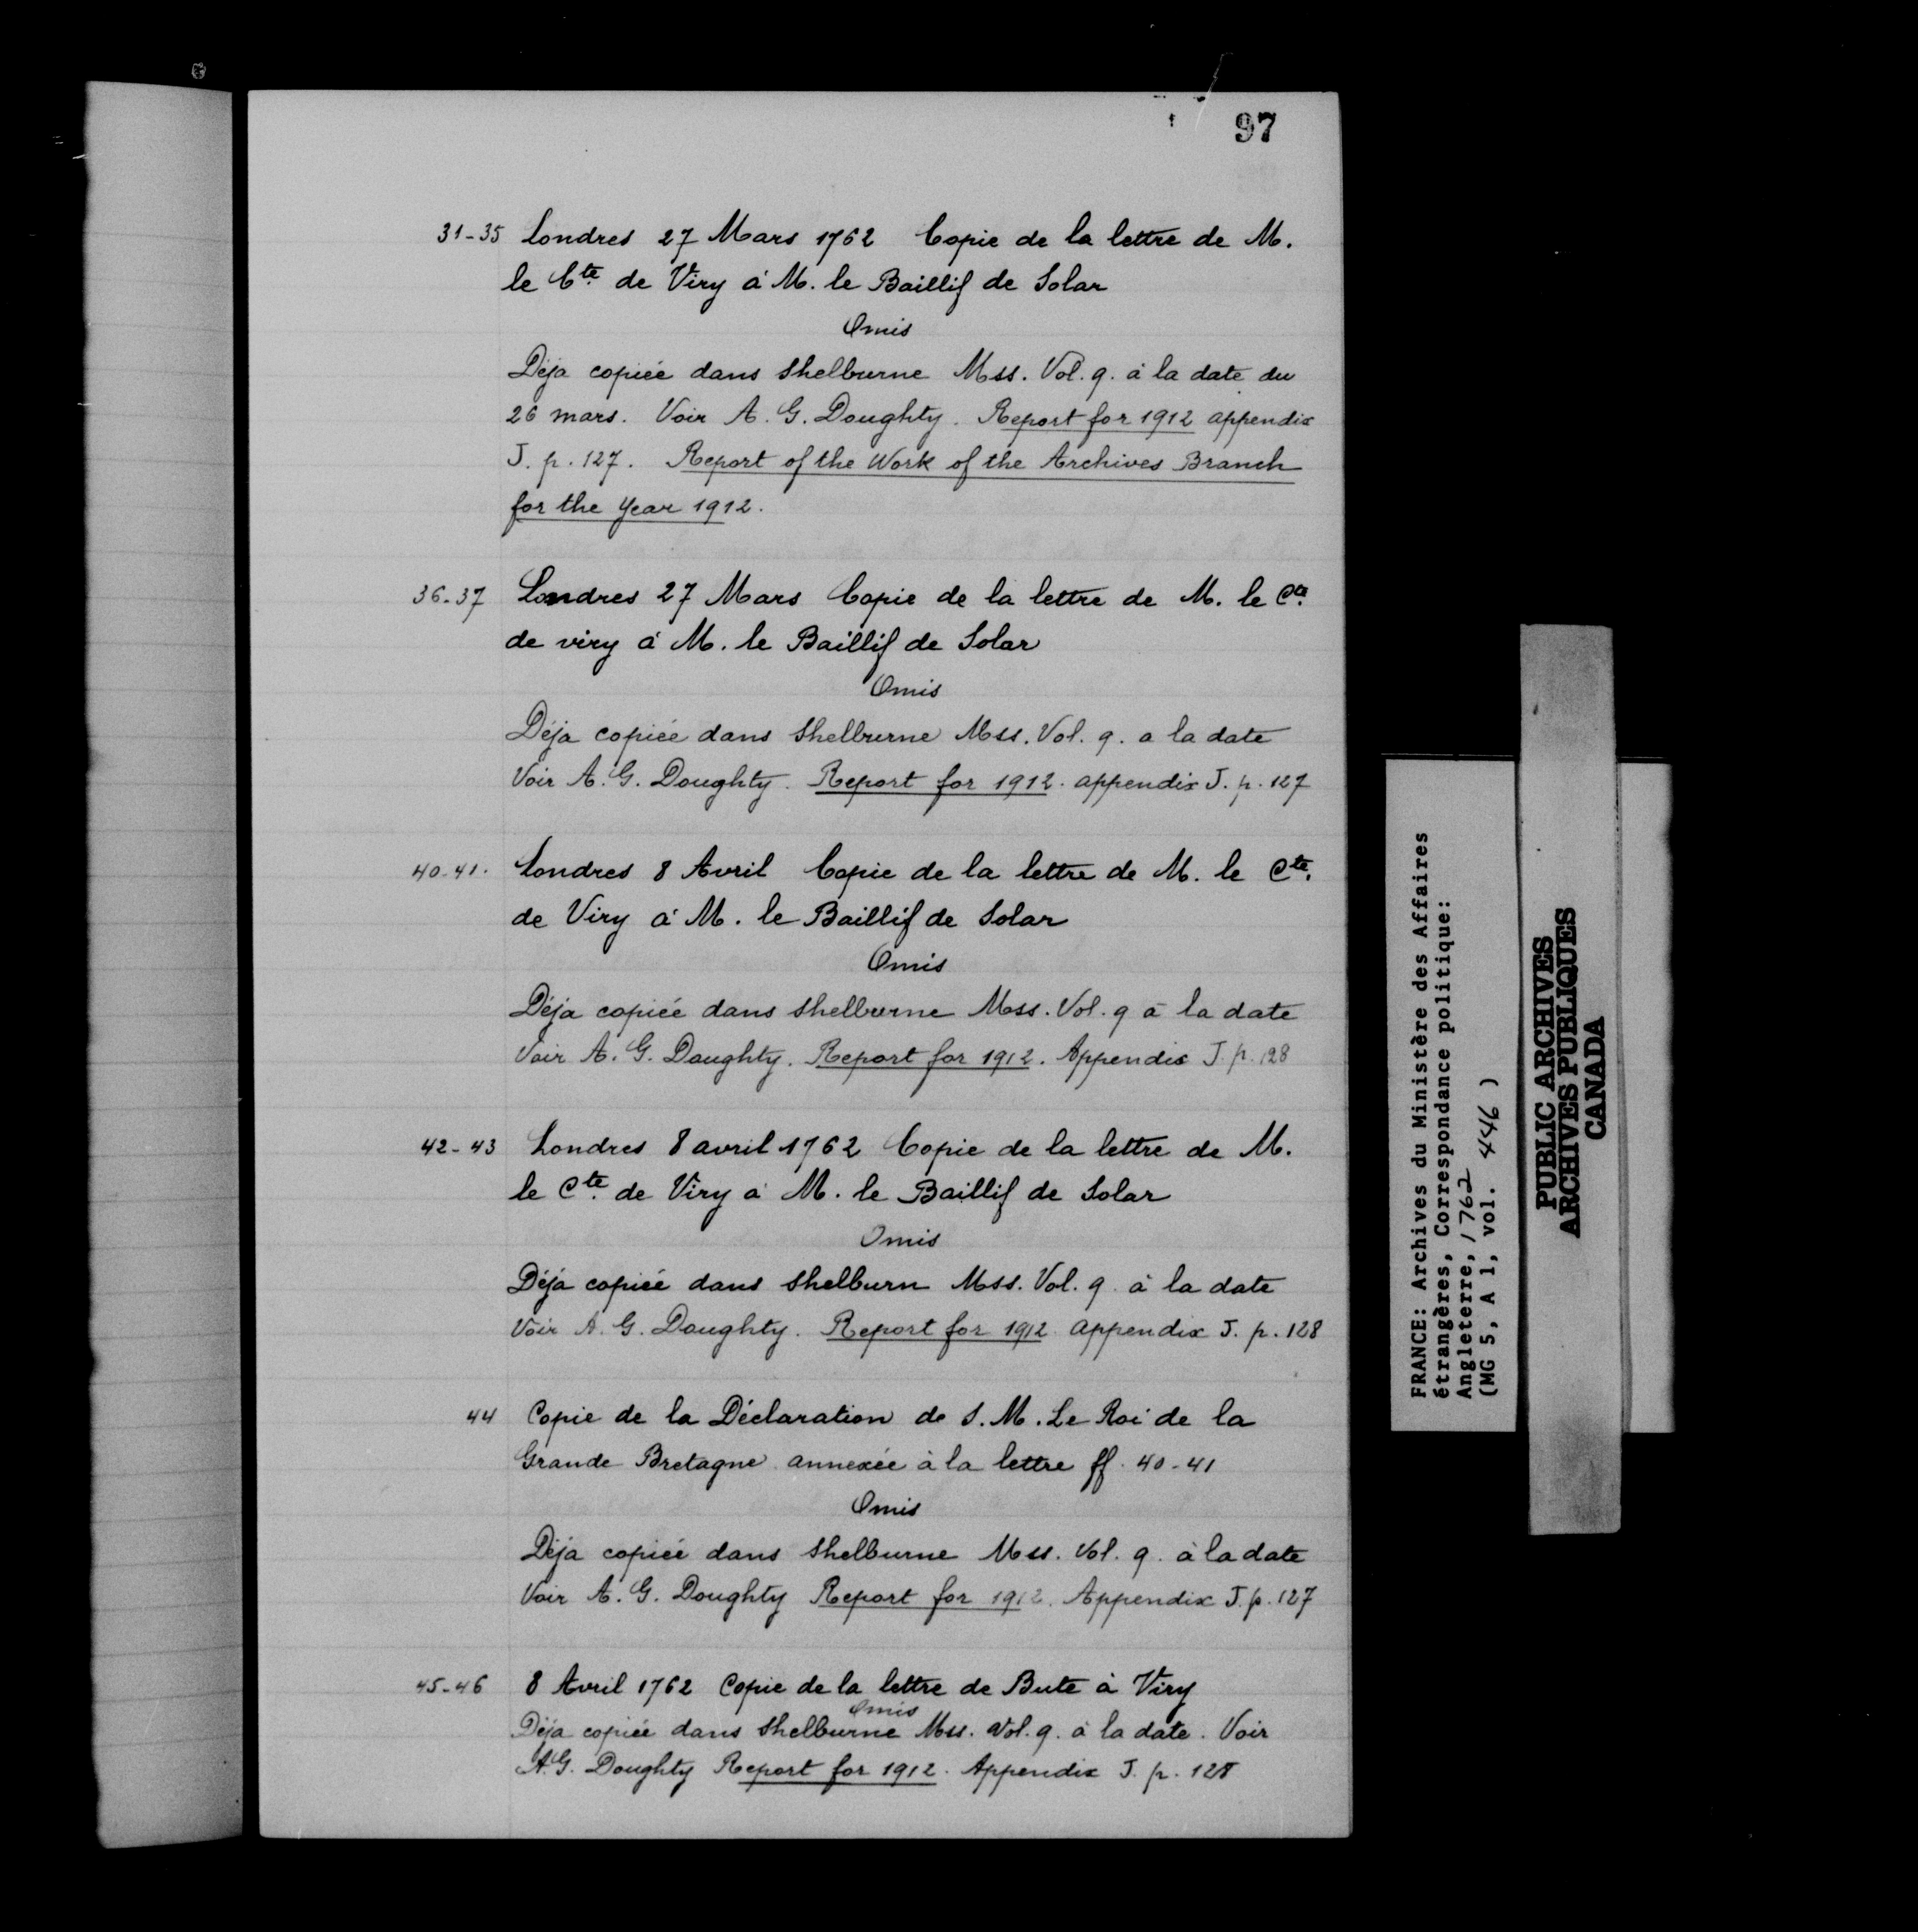 97
31-35 Londres 27 Mars 1762 Copie de la lettre de M.
le Cte. de Viry à M. le Baillif de Solar
Omis
Déja copiée dans Shelburne Mss. Vol. 9. à la date du
26 mars. Voir A. G. Doughty. Report for 1912 appendix
J. p. 127. Report of the Work of the Archives Branch
for the Year 1912.
36-37 Londres 27 Mars Copie de la lettre de M. le Cte.
de viry à M. le Baillif de Solar
Omis
Déja copiée dans Shelburne Mss. Vol. 9. a la date
Voir A. G. Doughty. Report for 1912. appendix J. p. 127
40-41. Londres 8 Avril Copie de la lettre de M. le Cte.
de Viry à M. le Baillif de Solar
Omis
Déja copiée dans Shelburne Mss. Vol. 9 à la date
Voir A. G. Doughty. Report for 1912. Appendix J. p. 128
42-43 Londres 8 avril 1762 Copie de la lettre de M.
le Cte. de Viry à M. le Baillif de Solar
Omis
Déjà copiée dans Shelburn Mss. Vol. 9 à la date
Voir A. G. Doughty. Report for 1912 appendix J. p. 128
44 Copie de la Déclaration de S. M. Le Roi de la
Grande Bretagne annexée à la lettre ff. 40-41
Omis
Déja copiée dans Shelburne Mss. Vol. 9. à la date
Voir A. G. Doughty Report for 1912. Appendix J. p. 127
45-46 8 Avril 1762 Copie de la lettre de Bute à Viry
Omis
Déja copiée dans Shelburne Mss. Vol. 9. à la date. Voir
A. G. Doughty Report for 1912. Appendix J. p. 128
FRANCE: Archives du Ministère des Affaires
étrangères, Correspondance politique:
Angleterre, 1762
(MG 5, A 1, vol. 446 )
PUBLIC ARCHIVES
ARCHIVES PUBLIQUES
CANADA